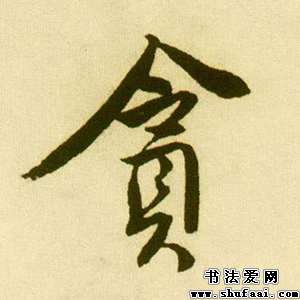 贪
书法爱网
www.shufaai.com